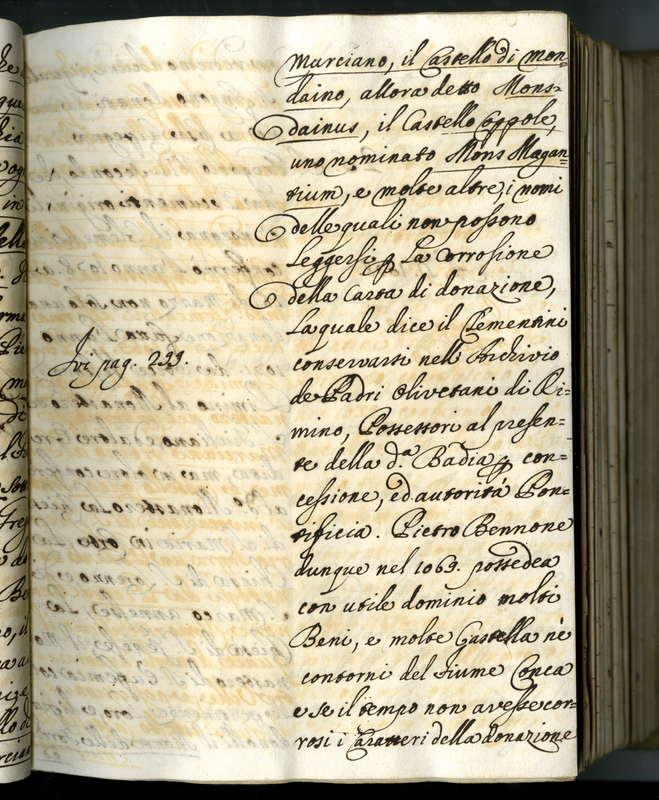 Marciano, il Castello di Mon=
daino, allora detto Mons=
dainus, il Castello Oppole,
uno nominato Mons Magan=
tium, e molte altre, i nomi
delle quali non possono
leggersi p la corrosione
della Carta di donazione,
La quale dice il Clementini
conservarsi nell Archivio
de Padri Olivetani di Ri=
mino, Possessori al presen=
te della d.a Badia p con=
cessione, ed autorità Pon=
tificia. Pietro Bennone
dunque nel 1069. possedea
con utile dominio molti
Beni, e molte Castella nè
contorni del fiume Conca
e se il tempo non avesse cor=
rosi i Caratteri della donazione
Ivi pag. 299.